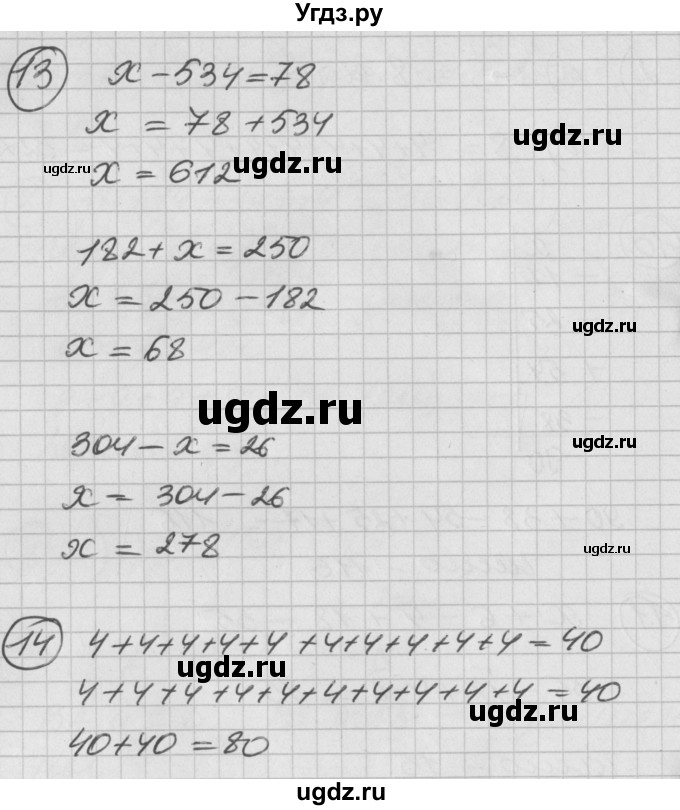 Угдз.ру
13 x - 534 = 78
x = 78 + 534
ugdz.ru
x = 612
ugdz.ru
ugdz.ru
182 + x = 250
x = 250 - 182
ugdz.ru
x = 68
ugdz.ru
304 - x = 26
ugdz.ru
x = 304 - 26
x = 278
ugdz.ru
14 4+4+4+4+4+4+4+4+4+4=40
ugdz.ru
4+4+4+4+4+4+4+4+4+4=40
ugdz.ru
40+40=80
ugdz.ru